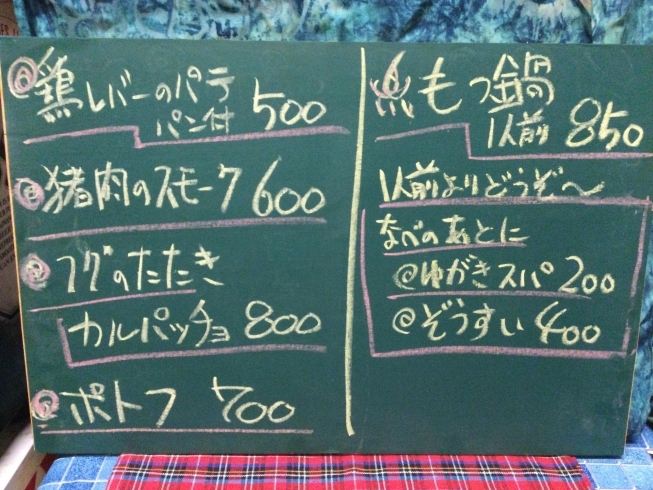 @鶏レバーのパテ
パン付 500
@猪肉のスモーク 600
@フグのたたき
カルパッチョ 800
@ポトフ 700
もつ鍋
1人前 850
1人前よりどうぞ〜
なべのあとに
@ゆがきスパ 200
@ぞうすい 400